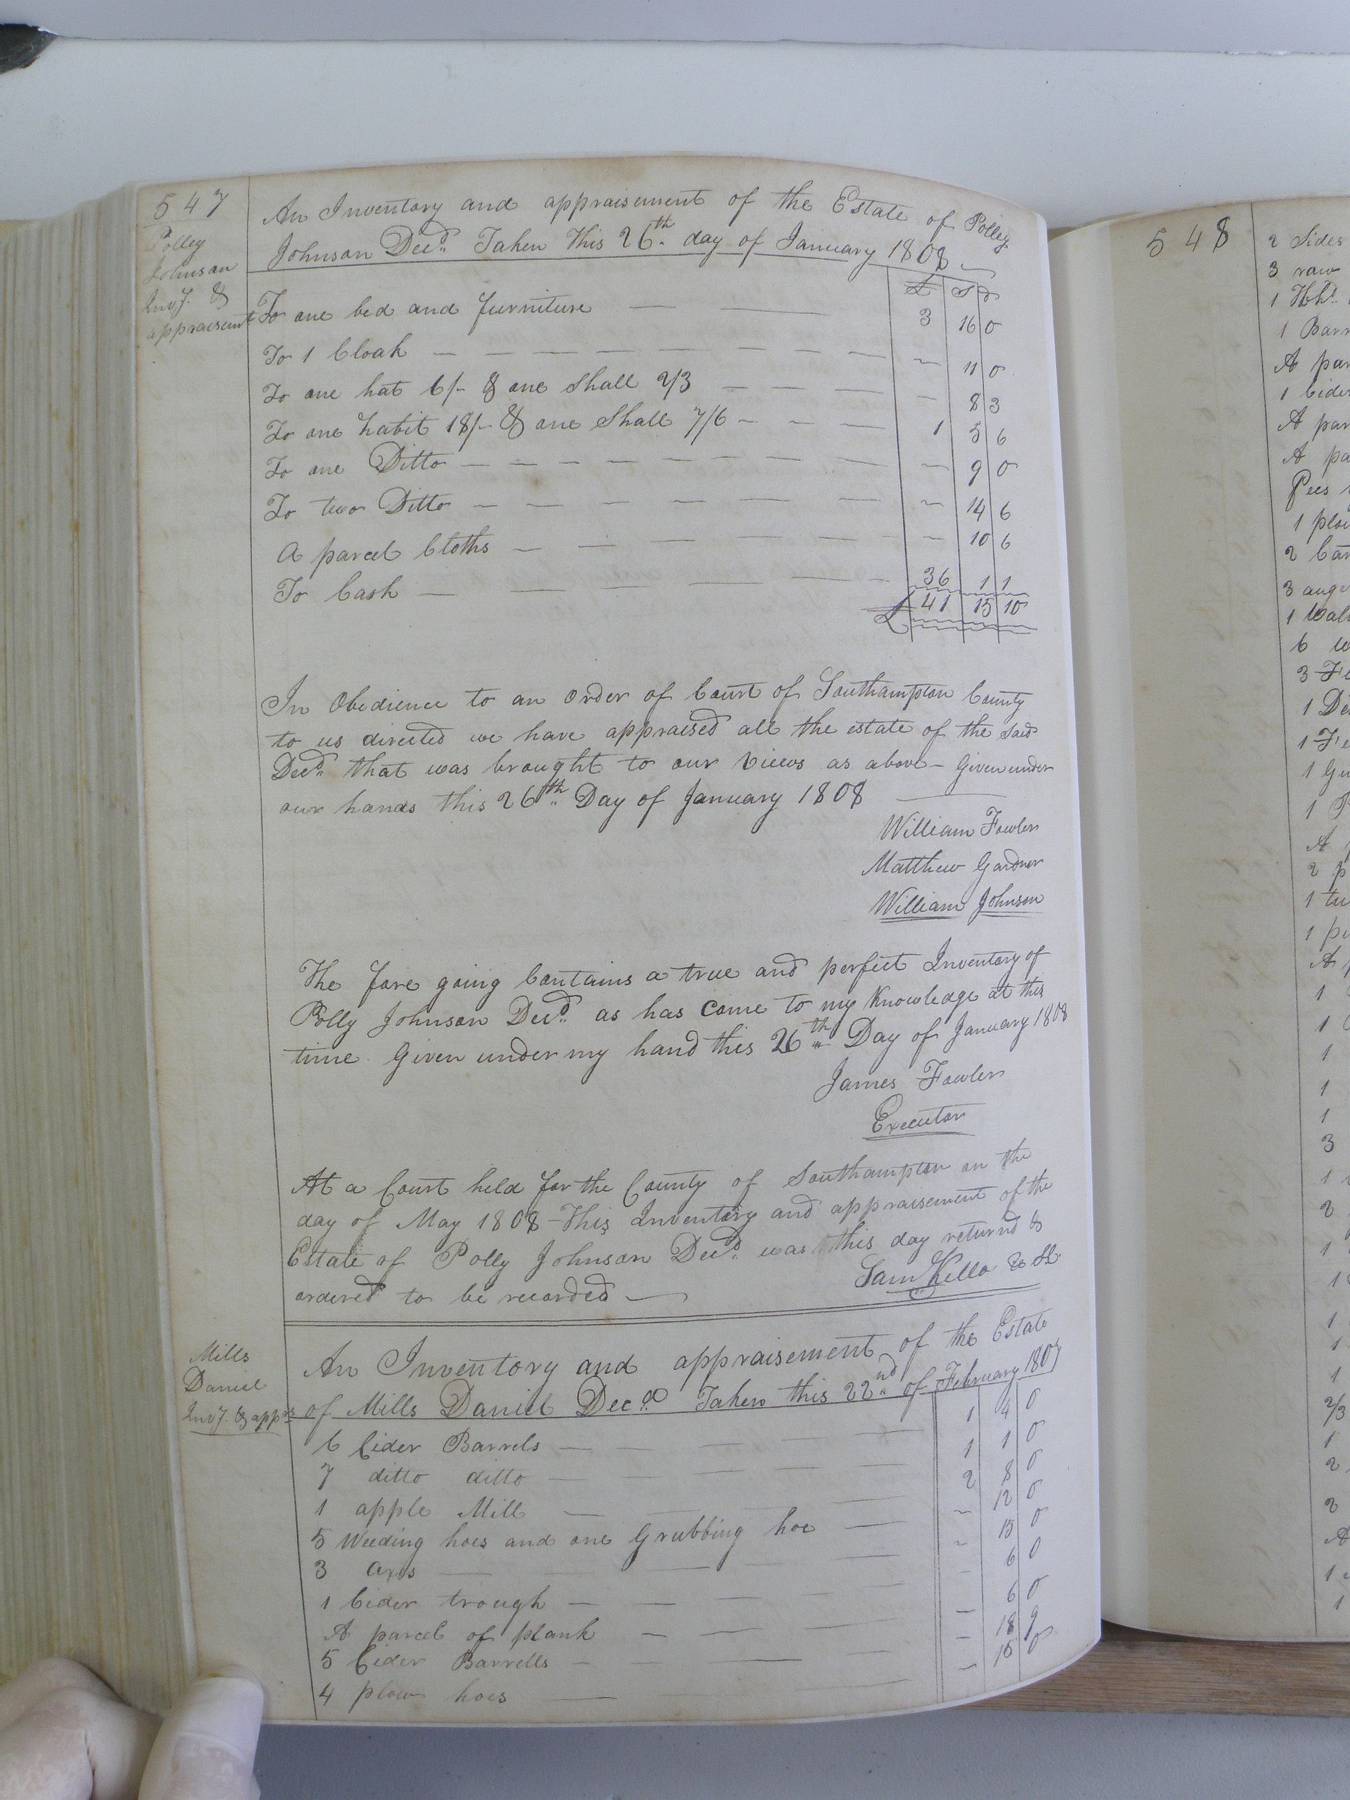 547
Polley
Johnson
Invy. &
appraisement
An Inventory and appraisement of the Estate of Polley
Johnson Decd. Taken this 26th. day of January 1808
£ S D
To one bed and furniture — 3 16 0
To 1 Cloak — ~ 11 0
To one hat 6/- & one Shall 2/3 — 8 3
To one habit 18/- & one Shall 7/6 — 1 5 6
To one Ditto — 9 0
To two Ditto — ~ 14 6
A parcel Cloths — 10 6
To Cash — 36 1 1
£ 41 15 10
In Obedience to an order of Court of Southampton County
to us directed we have appraised all the estate of the said
Decd. that was brought to our views as above – Given under
our hands this 26th. Day of January 1808
William Fowler
Matthew Gardner
William Johnson
The fore going Contains a true and perfect Inventory of
Polly Johnson Decd. as has come to my Knowledge at this
time. Given under my hand this 26th. Day of January 1808
James Fowler
Executor
At a Court held for the County of Southampton on the
day of May 1808 – This Inventory and appraisement of the
Estate of Polly Johnson Decd. was this day returnd &
ordered to be recorded —
Sam Kello
Mills
Daniel
Invy. & apps.
An Inventory and appraisement of the Estate
of Mills Daniel Decd. Taken this 22nd. of February 1807
6 Cider Barrels — 1 4 0
7 ditto ditto — 1 1 0
1 apple Mill — 2 8 0
5 Weeding hoes and one Grubbing hoe — ~ 12 0
3 axs — ~ 15 0
1 Cider trough — 6 0
A parcel of plank — 6 0
5 Cider Barrells — 18 9
4 plow hoes — 15 0
548
2 Sides
3 raw
1 Hhd.
1 Barr
A par
1 Cider
A par
A pa
1 plo
2 Car
3 auge
6 w
1 De
A p
2 p
1 tu
A p
1
1
1
1
1
3
1
2
1
1
1
1
1
2/3
1
2
2
A
1
1